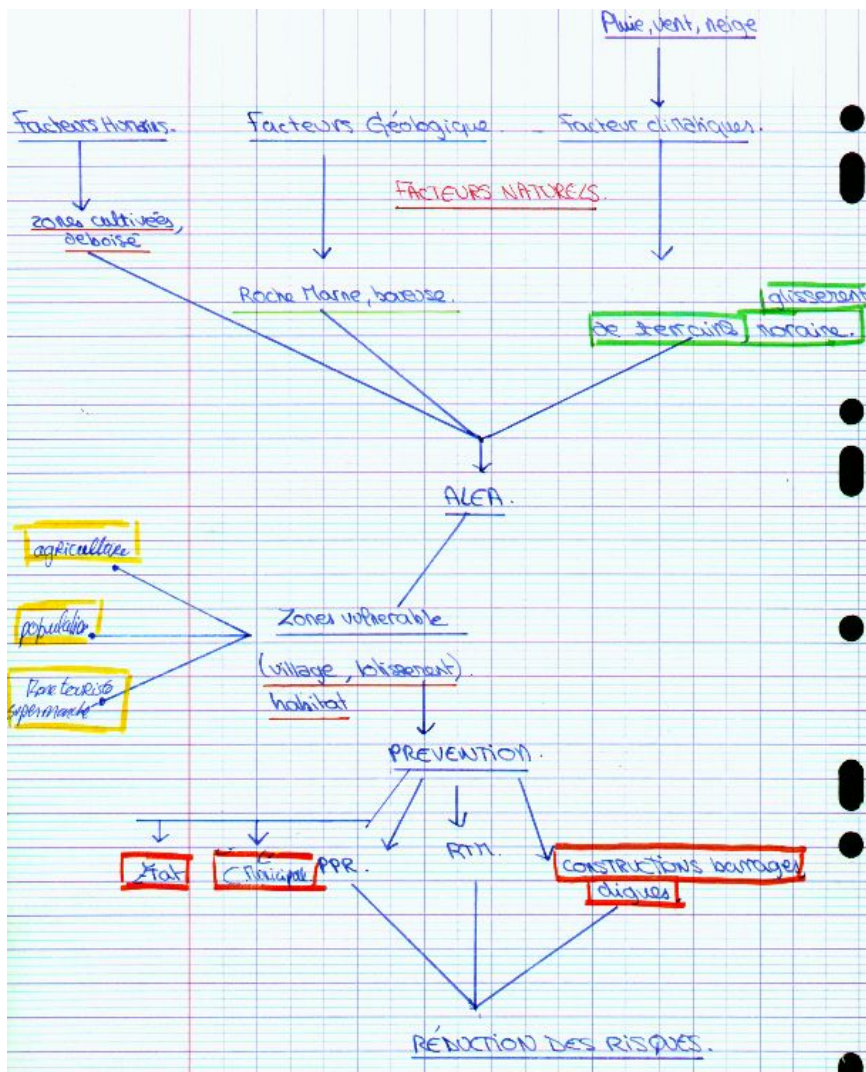 Pluie, vent, neige
Facteurs Humains.
Facteurs Géologique.
Facteur climatiques.
FACTEURS NATURELS.
zones cultivées,
deboisé
Roche Marne, boreuse.
glissement
de terrains
moraine.
ALEA.
agriculture
population
Zones vulnerable
(village, lotissement)
habitat
supermarche
PREVENTION.
Etat
C Municipale
PPR.
RTM.
CONSTRUCTIONS barrages
digues
RÉDUCTION DES RISQUES.